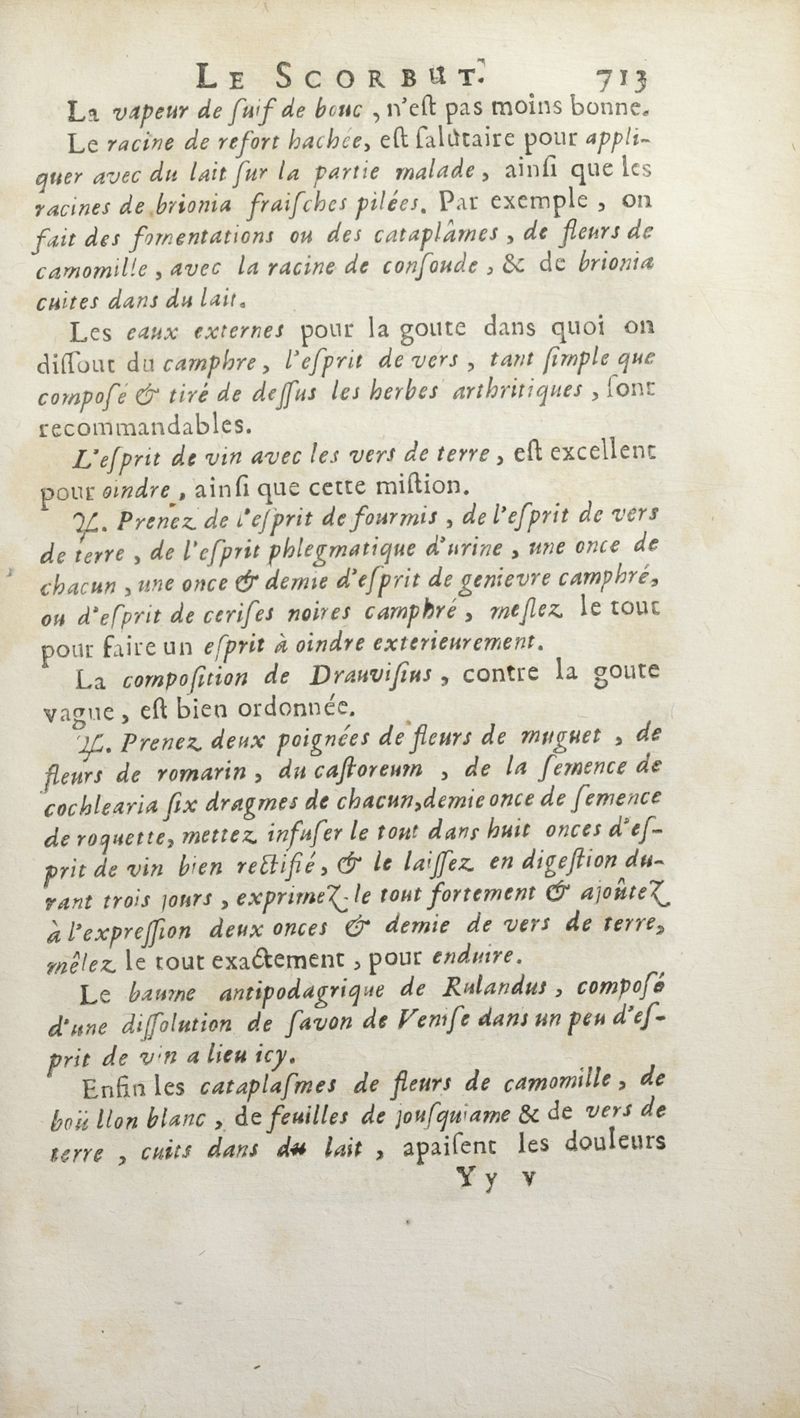 LE SCORBUT. 713
La vapeur de ſuif de bouc , n'eſt pas moins bonne.
Le racine de refort hachée, eſt ſalûtaire pour appli-
quer avec du lait ſur la partie malade , ainſi que les
racines de brionia fraiſches pilées. Par exemple , on
fait des fomentations ou des cataplâmes , de fleurs de
camomille , avec la racine de conſoude , & de brionia
cuites dans du lait.
Les eaux externes pour la goute dans quoi on
diſſout du camphre , l'eſprit de vers , tant ſimple que
compoſé & tiré de deſſus les herbes arthritiques , ſont
recommandables.
L'eſprit de vin avec les vers de terre , eſt excellent
pour oindre , ainſi que cette miſtion.
♃. Prenez de l'eſprit de fourmis , de l'eſprit de vers
de terre , de l'eſprit phlegmatique d'urine , une once de
chacun , une once & demie d'eſprit de genievre camphré,
ou d'eſprit de ceriſes noires camphré , meſlez le tout
pour faire un eſprit à oindre exterieurement.
La compoſition de Drauviſius , contre la goute
vague , eſt bien ordonnée.
♃. Prenez deux poignées de fleurs de muguet , de
fleurs de romarin , du caſtoreum , de la ſemence de
cochlearia ſix dragmes de chacun, demie once de ſemence
de roquette, mettez infuſer le tout dans huit onces d'eſ-
prit de vin bien rectifié, & le laiſſez en digeſtion du-
rant trois jours , exprimez-le tout fortement & ajoûtez
à l'expreſſion deux onces & demie de vers de terre,
mêlez le tout exactement , pour enduire.
Le baume antipodagrique de Rulandus , compoſé
d'une diſſolution de ſavon de Veniſe dans un peu d'eſ-
prit de vin a lieu icy.
Enfin les cataplaſmes de fleurs de camomille , de
boüillon blanc , de feuilles de jouſquiame & de vers de
terre , cuits dans du lait , apaiſent les douleurs
Yy v